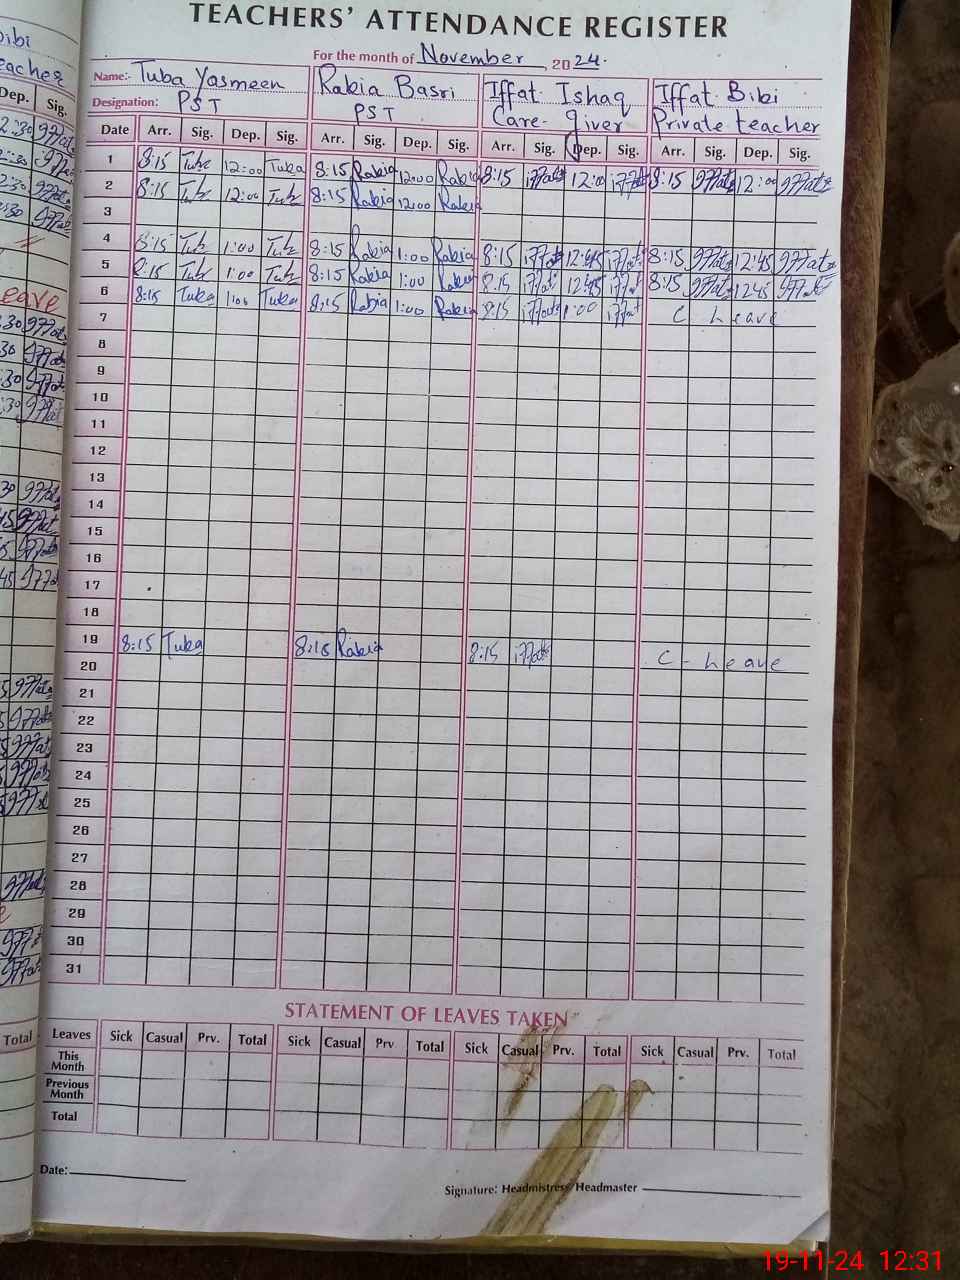 TEACHERS' ATTENDANCE REGISTER
For the month of November, 2024.
Name:- Tuba Yasmeen Rabia Basri Iffat Ishaq Iffat Bibi
Designation: PST PST Care-giver Private teacher
Date Arr. Sig. Dep. Sig. Arr. Sig. Dep. Sig. Arr. Sig. Dep. Sig. Arr. Sig. Dep. Sig.
1 8:15 Tuba 12:00 Tuba 8:15 Rabia 12:00 Rabia 8:15 iffat 12:00 iffat 8:15 Iffat 12:00 Iffat
2 8:15 Tuba 12:00 Tuba 8:15 Rabia 12:00 Rabia
3
4 8:15 Tuba 1:00 Tuba 8:15 Rabia 1:00 Rabia 8:15 iffat 12:45 iffat 8:15 Iffat 12:45 Iffat
5 8:15 Tuba 1:00 Tuba 8:15 Rabia 1:00 Rabia 8:15 iffat 12:45 iffat 8:15 Iffat 12:45 Iffat
6 8:15 Tuba 1:00 Tuba 8:15 Rabia 1:00 Rabia 8:15 iffat 1:00 iffat C Leave
7
8
9
10
11
12
13
14
15
16
17
18
19 8:15 Tuba 8:15 Rabia 8:15 iffat C-Leave
20
21
22
23
24
25
26
27
28
29
30
31
STATEMENT OF LEAVES TAKEN
Leaves Sick Casual Prv. Total Sick Casual Prv Total Sick Casual Prv. Total Sick Casual Prv. Total
This Month
Previous Month
Total
Date:
Signature: Headmistress/Headmaster
19-11-24 12:31